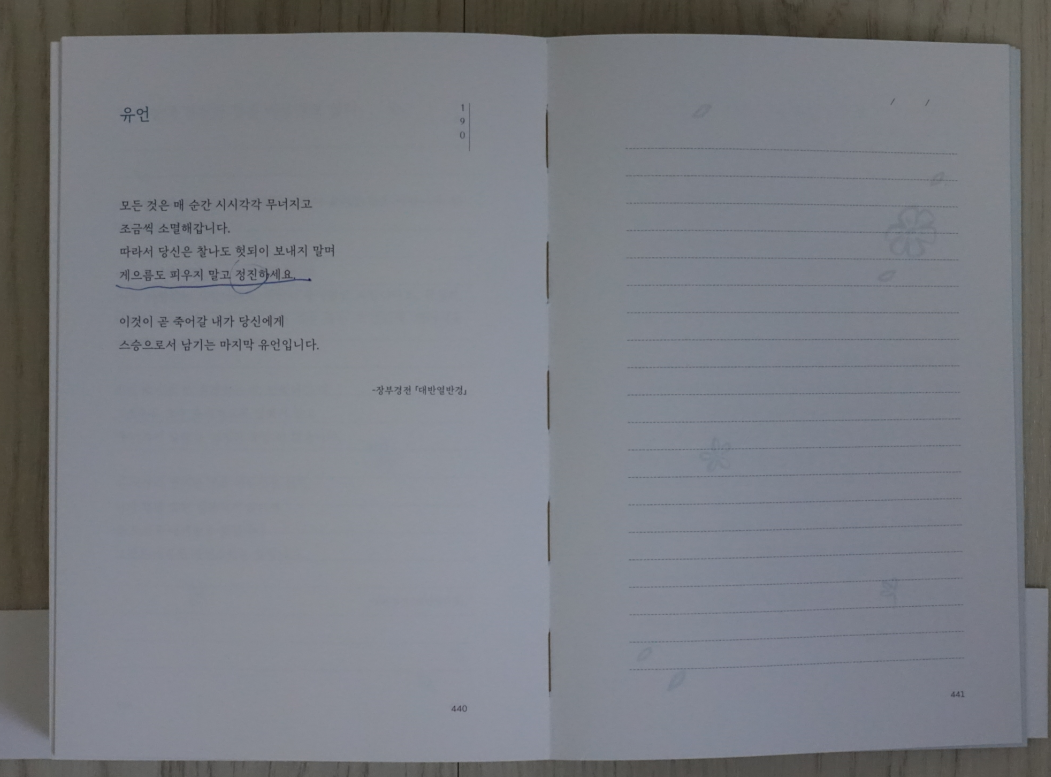 유언
190
모든 것은 매 순간 시시각각 무너지고
조금씩 소멸해갑니다.
따라서 당신은 찰나도 헛되이 보내지 말며
게으름도 피우지 말고 정진하세요.
이것이 곧 죽어갈 내가 당신에게
스승으로서 남기는 마지막 유언입니다.
-장부경전 「대반열반경」
440
/ /
441